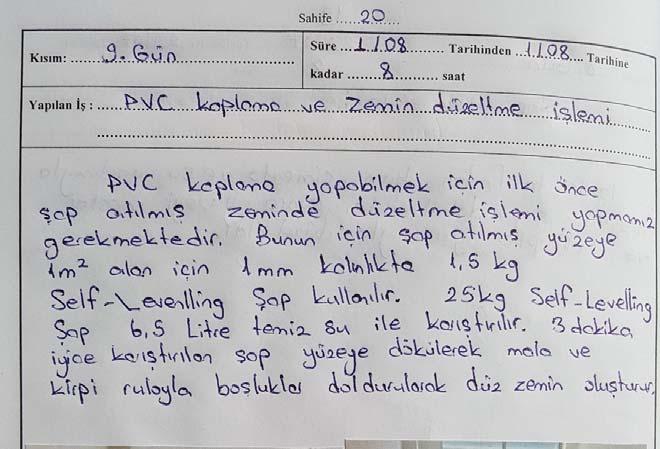 Sahife .....20....
Kısım: ........9. Gün.........
Süre ...1.1.08........ Tarihinden ..1.1.08.... Tarihine
kadar .......8........ saat
Yapılan İş : ......PVC kaplama ve zemin düzeltme işlemi
PVC kaplama yapabilmek için ilk önce
şap atılmış zeminde düzeltme işlemi yapmamız
gerekmektedir. Bunun için şap atılmış yüzeye
1m² alan için 1mm kalınlıkta 1,5 kg
Self-Levenlling Şap kullanılır. 25kg Self-Levelling
Şap 6,5 Litre temiz su ile karıştırılır. 3 dakika
iyice karıştırılan şap yüzeye dökülerek mala ve
kirpi ruloyla boşluklar doldurularak düz zemin oluşturur.